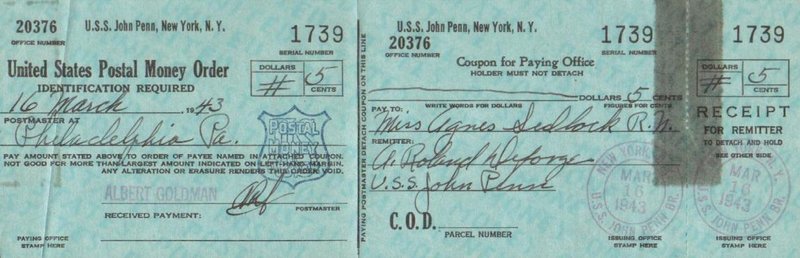 20376
OFFICE NUMBER
U.S.S. John Penn, New York, N. Y.
1739
SERIAL NUMBER
United States Postal Money Order
IDENTIFICATION REQUIRED
DOLLARS
CENTS
# 5
16 March 1943
POSTMASTER AT
Philadelphia Pa.
PAY AMOUNT STATED ABOVE TO ORDER OF PAYEE NAMED IN ATTACHED COUPON.
NOT GOOD FOR MORE THAN LARGEST AMOUNT INDICATED ON LEFT-HAND MARGIN.
ANY ALTERATION OR ERASURE RENDERS THIS ORDER VOID.
POSTAL
MONEY
ALBERT GOLDMAN
POSTMASTER
RECEIVED PAYMENT:
PAYING OFFICE
STAMP HERE
PAYING POSTMASTER DETACH COUPON ON THIS LINE
U.S.S. John Penn, New York, N. Y.
20376
OFFICE NUMBER
1739
SERIAL NUMBER
Coupon for Paying Office
HOLDER MUST NOT DETACH
DOLLARS 5 CENTS
PAY TO:
WRITE WORDS FOR DOLLARS
FIGURES FOR CENTS
Miss Agnes Sedlock R.N.
REMITTER:
A. Roland
U.S.S. John Penn
C.O.D.
PARCEL NUMBER
NEW YORK
MAR
16
1943
U.S.S. JOHN PENN BR.
ISSUING OFFICE
STAMP HERE
1739
SERIAL NUMBER
DOLLARS
CENTS
# 5
RECEIPT
FOR REMITTER
TO DETACH AND HOLD
SEE OTHER SIDE
N. Y.
MAR
16
1943
U.S.S. JOHN PENN BR.
ISSUING OFFICE
STAMP HERE